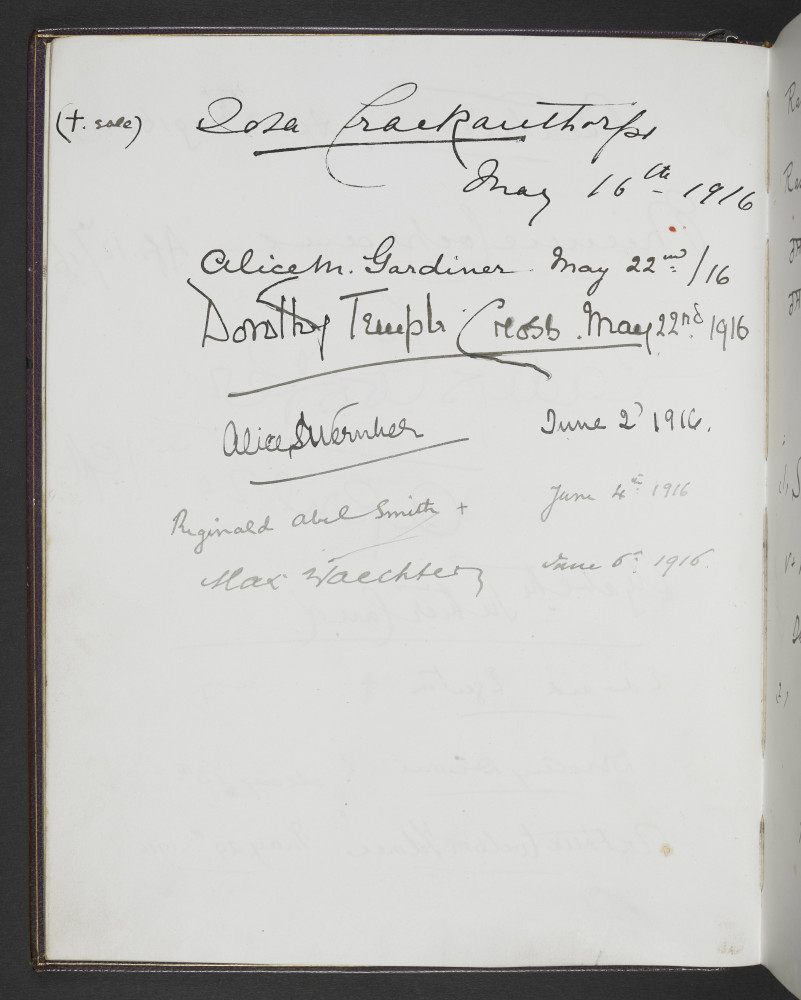 (t. sale) Rosa Crackanthorpe
May 16th 1916
Alice M. Gardiner. May 22nd/16
Dorothy Temple Cross. May 22nd 1916
Alice S Wernher June 2 1916.
Reginald Abel Smith + June 4th 1916
Max Waechter June 6th 1916.